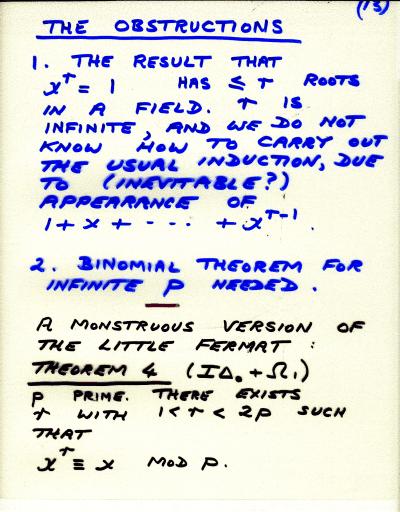 (13)
THE OBSTRUCTIONS
1. THE RESULT THAT
x^r = 1 HAS ≤ r ROOTS
IN A FIELD. r IS
INFINITE, AND WE DO NOT
KNOW HOW TO CARRY OUT
THE USUAL INDUCTION, DUE
TO (INEVITABLE?)
APPEARANCE OF
1 + x + --- + x^{r-1}.
2. BINOMIAL THEOREM FOR
INFINITE p NEEDED.
A MONSTROUS VERSION OF
THE LITTLE FERMAT :
THEOREM 4 (IΔ₀ + Ω₁)
p PRIME. THERE EXISTS
r WITH 1 < r < 2p SUCH
THAT
x^r ≡ x MOD p.